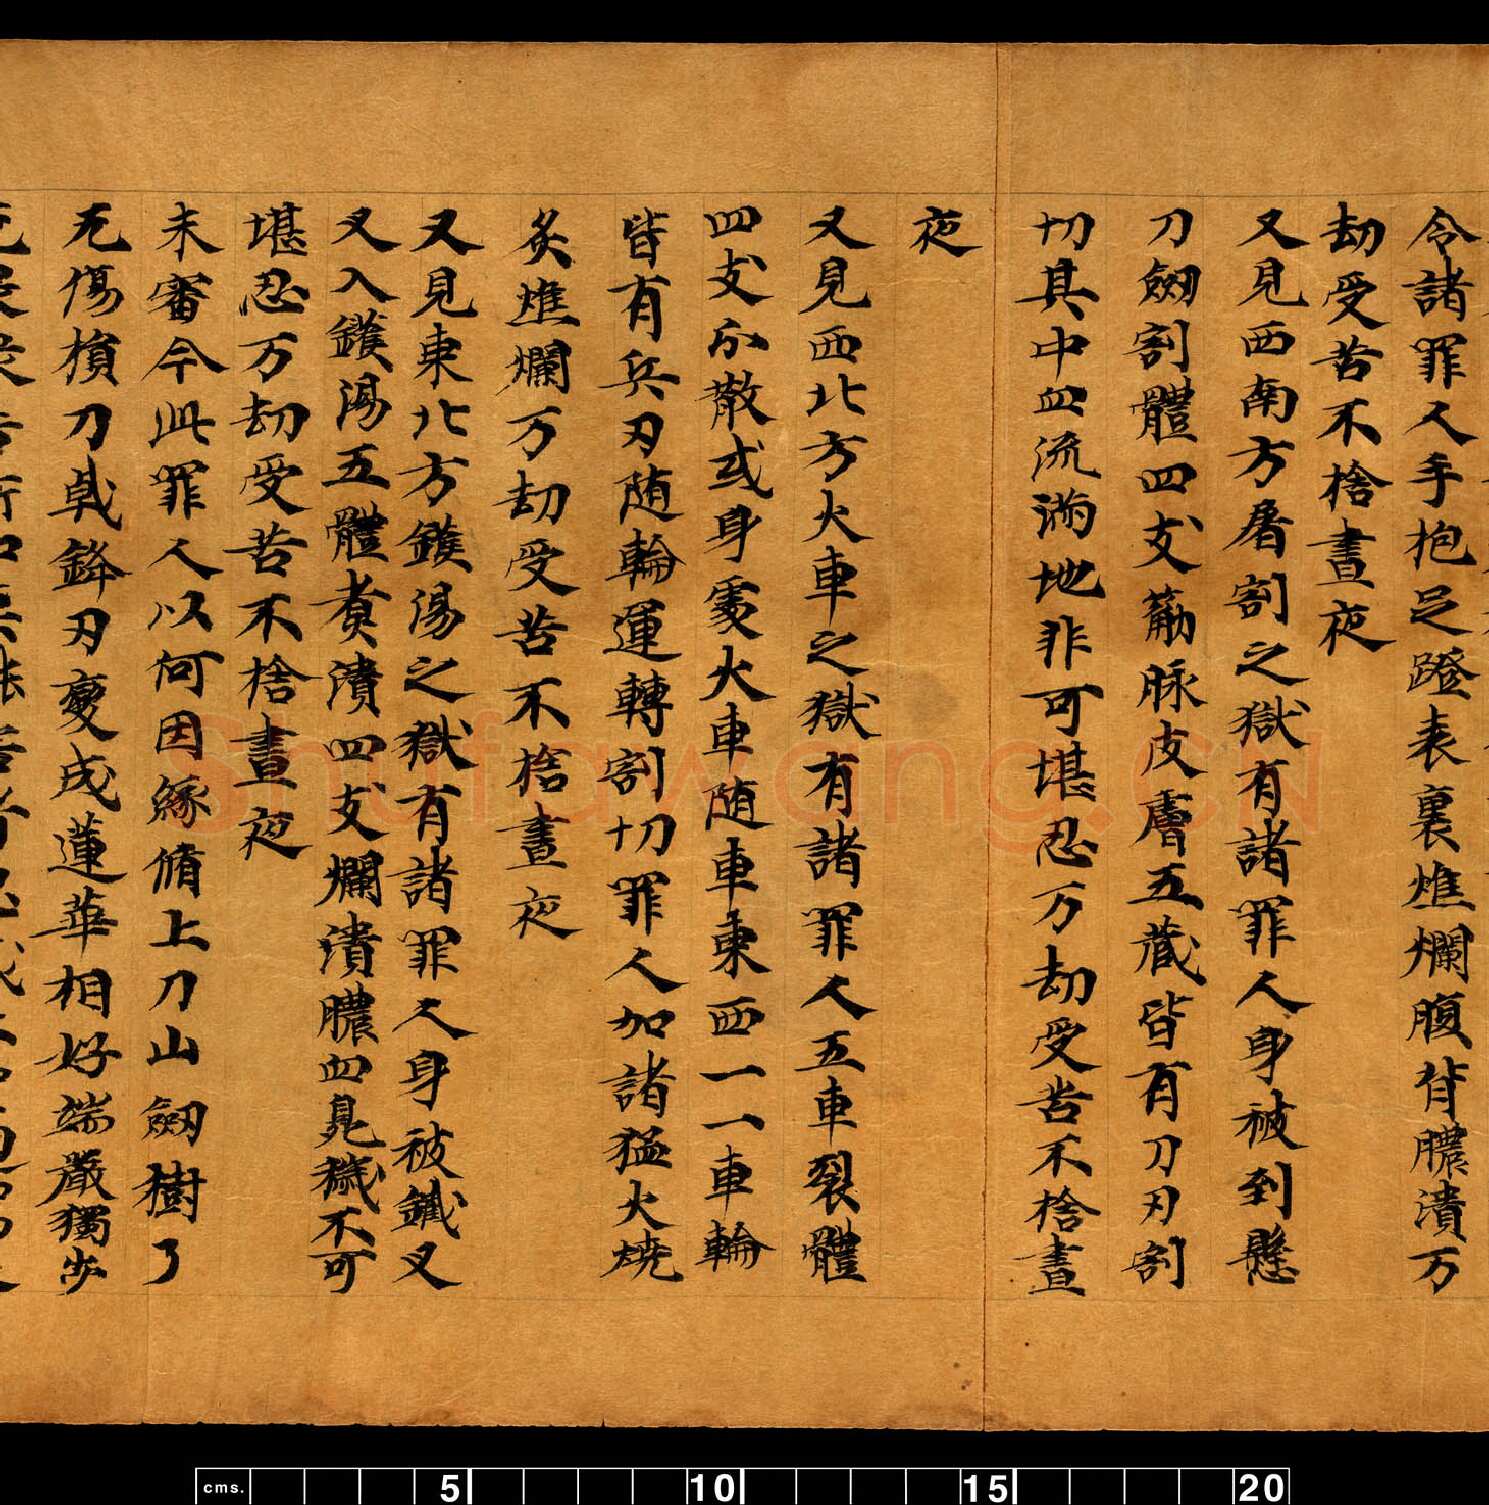 令諸罪人手抱足蹬表裏燋爛腹背膿潰万
劫受苦不捨晝夜
又見西南方屠割之獄有諸罪人身被到懸
刀劔割體四支觔脉皮膚五藏皆有刀刃割
切其中血流滿地非可堪忍万劫受苦不捨晝
夜
又見西北方火車之獄有諸罪人五車裂體
四支分散或身處火車随車東西一一車輪
皆有兵刃随輪運轉割切罪人加諸猛火燒
炙燋爛万劫受苦不捨晝夜
又見東北方鑊湯之獄有諸罪人身被鐵叉
叉入鑊湯五體煑潰四支爛潰膿血臰穢不可
堪忍万劫受苦不捨晝夜
未審今此罪人以何因緣脩上刀山劔樹了
无傷損刀戟鋒刃變成蓮華相好端嚴獨步
Shufawang.CN
cms. 5 10 15 20